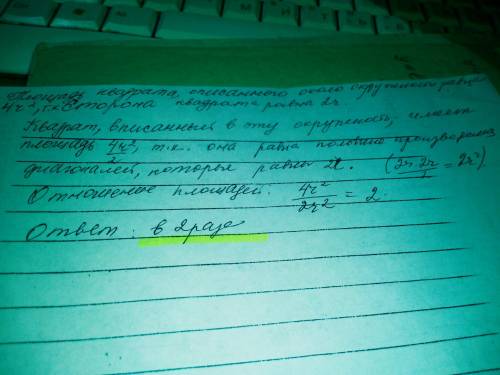 Площадь квадрата, описанного около окружности равна
4r², т.к. сторона квадрата равна 2r.
Квадрат, вписанный в эту окружность, имеет
площадь 4r²/2, т.к. она равна половине произведения
диагоналей, которые равны 2r. (2r·2r/2 = 2r²)
Отношение площадей: 4r²/2r² = 2.
Ответ: в 2 раза